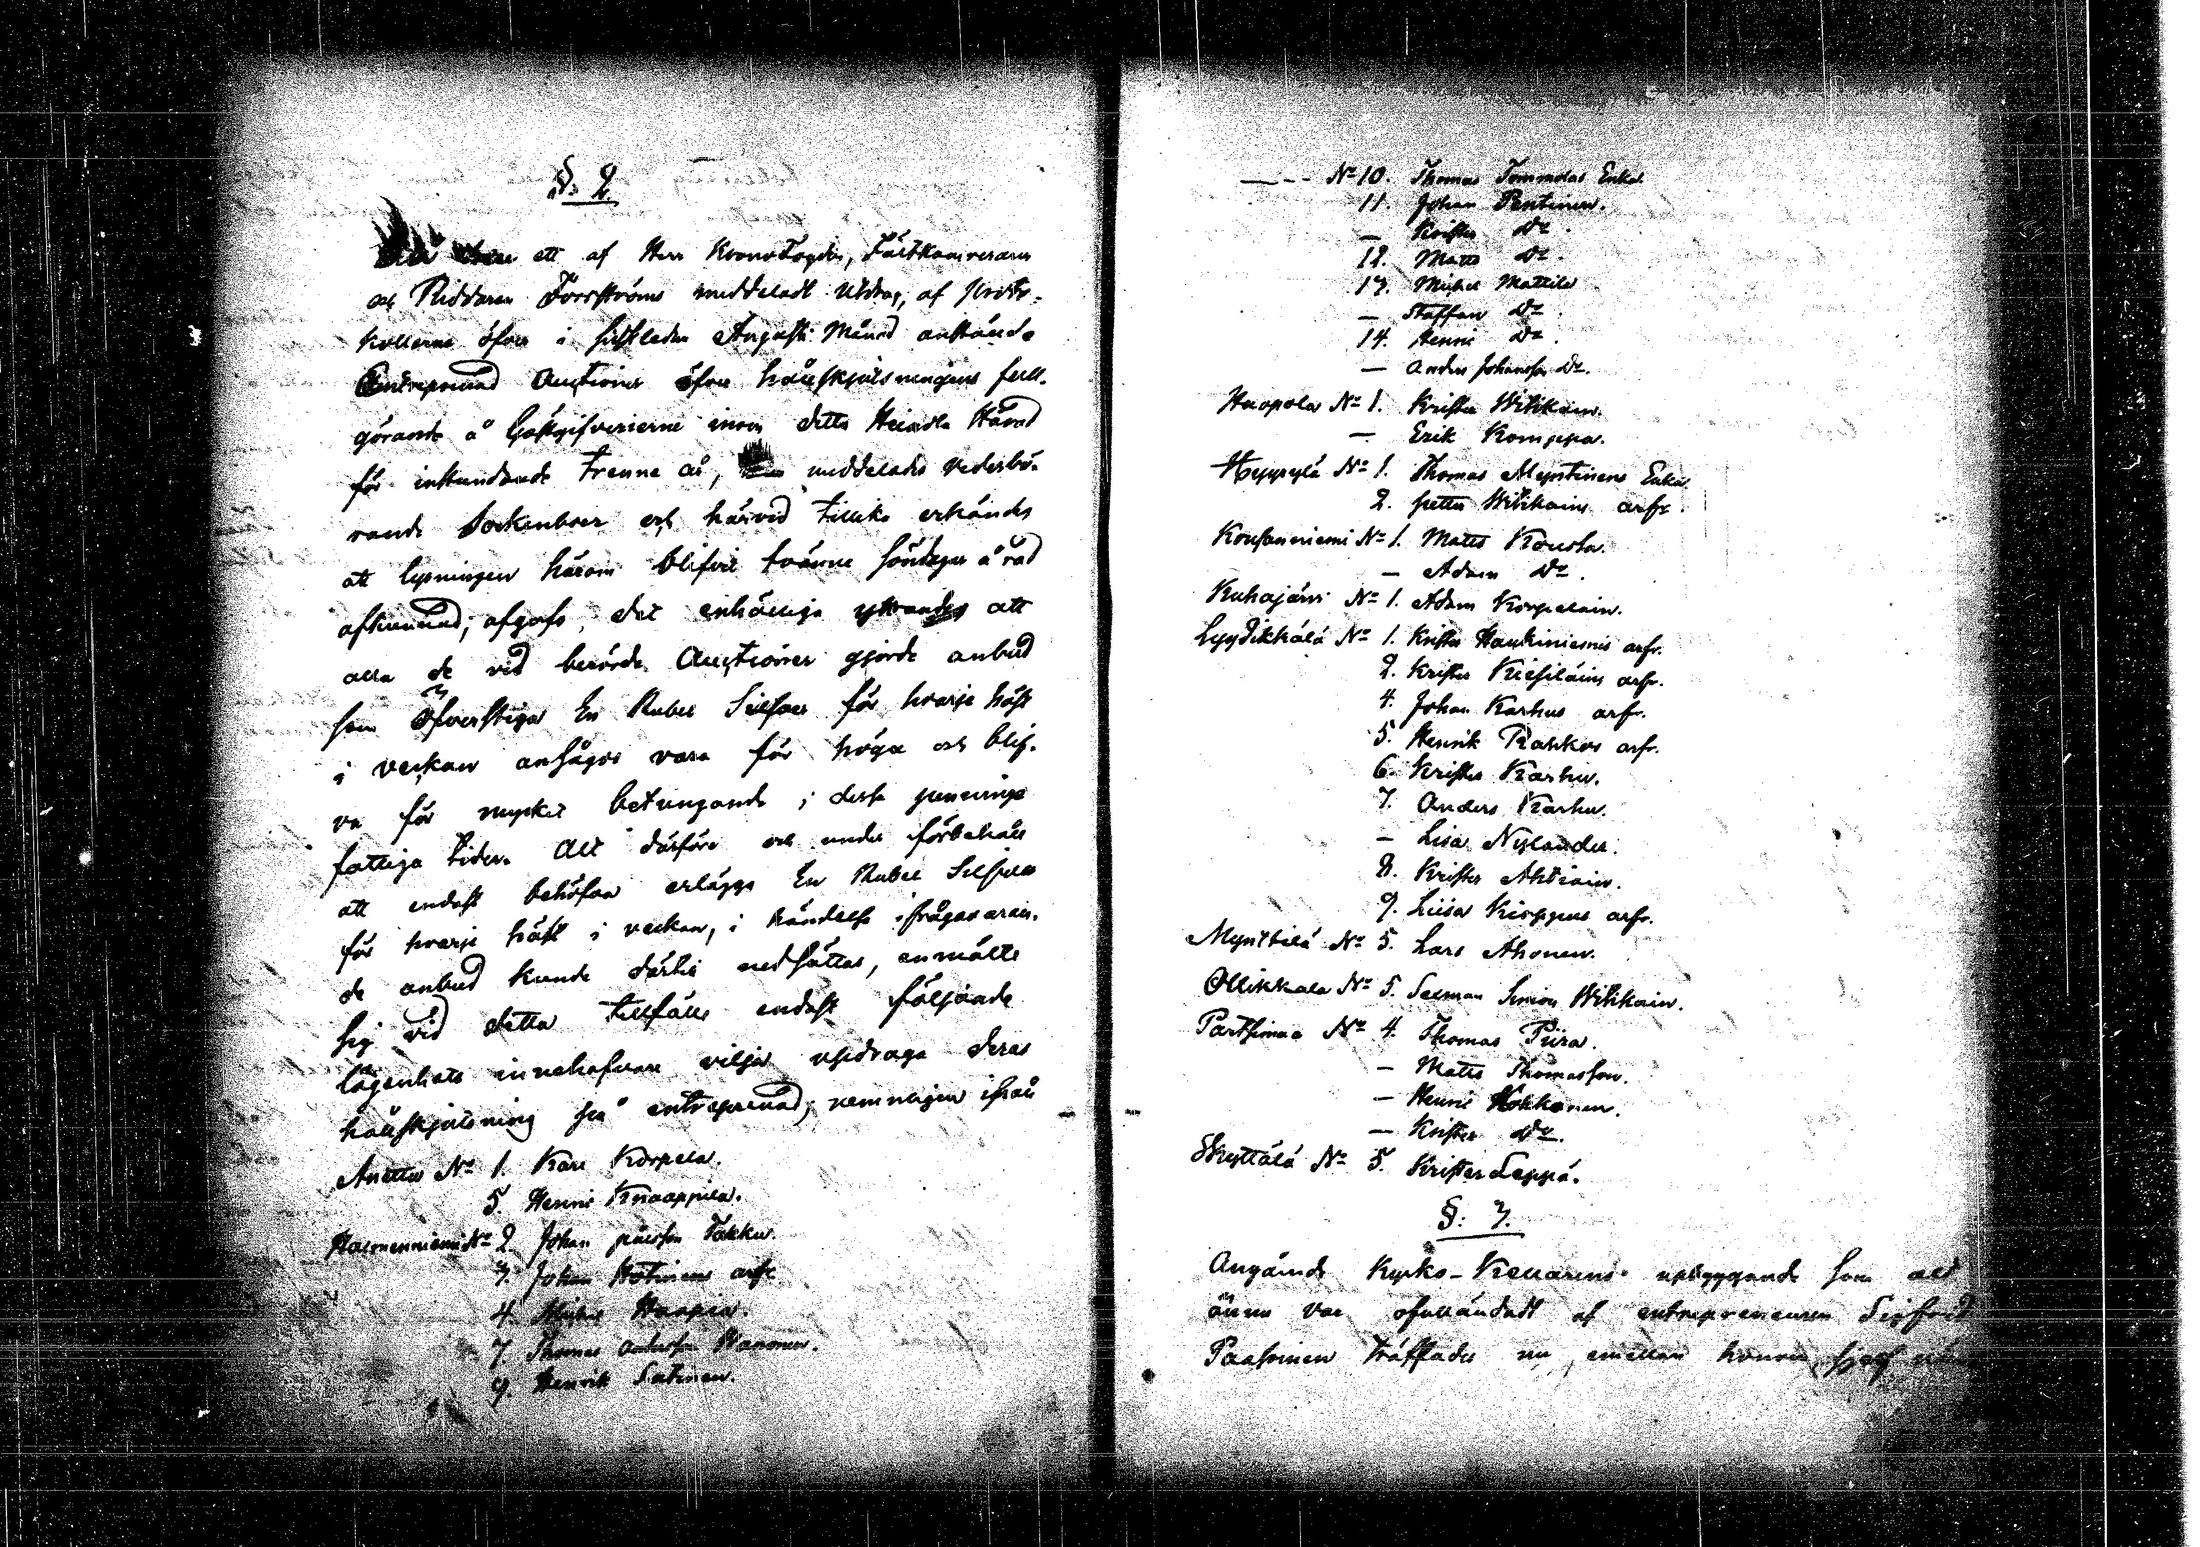 §: 2.
ett af Herr KronoFogden, Fältkamreraren
och Riddaren Forsströms meddeladt Utdrag, af proto-
kollerne öfver i sistleden Augusti Månad anstälde
Entreprenad Auctioner öfver hållskjutsningens full-
görande å Gästgifverierne inom detta Heinola Härad
för instundande trenne år, meddelades vederbö-
rande Sockenboer och härvid tillika erkändes
att lysningen härom blifvit tvänne söndagar å rad
afkunnad; afgafs det enhälliga yttrandet att
alla de vid berörde Auctioner gjorde anbud
som öfverstiga En Rubel Silfver för hvarje häst
i veckan ansågos vara för höga och blif-
va för mycket betungande i dessa penninge
fattiga tider. Alt därföre och under förbehåll
att endast behöfva erlägga En Rubel Silfver
för hvarje häst i veckan, i händelse ifrågavaran-
de anbud kunde därtil nedsättas, anmälte
sig vid detta tillfälle endast följande
lägenhets innehafvare vilja updraga deras
hållskjutsning på entreprenad, nemnligen ifrån
Anttu No 1. Karl Korpela.
5. Henric Knaappila.
No 2 Johan pålsson Takku.
3. Johan Hotinens arfr.
4. Michel Haapia.
7 Thomas Andersson
9. Henrik Satinen.
--- No 10. Thomas Tommolas Enka.
11. Johan Pentinen.
— Krister Do.
12. Matts Do.
13. Michel Mattila
— Staffan Do.
14. Henric Do.
— Anders Johansson Do.
Haapala No 1. Krister Witikain.
— Erik Komppa.
Hyyrylä No 1. Thomas Myntinens Enka.
2. Petter Witikains arfr.
Kousaniemi No 1. Matts Kousa.
— Adam Do.
Kuhajärvi No 1. Adam Korpelain.
Lyydikkälä No 1. Krister Haukiniemis arfr.
2. Krister Kiesiläins arfr.
4. Johan Karhus arfr.
5. Henrik Rahkos arfr.
6. Krister Karhu.
7. Anders Karhu.
— Lisa Nylander.
8. Krister Ahtiain.
9. Liisa Kirppus arfr.
Mynttilä No 5. Lars Ahonen.
Ollikkala No 5. Salman Simon Witikain.
Partsimaa No 4. Thomas Piira.
— Matts Thomasson.
— Henric Hokkanen.
— Krister Do.
Skyttälä No 5. Krister Leppä.
§: 3.
Angående Kyrko-Kellarens upbyggande som alt
ännu var ofulländadt af entrepreneuren Sigfrid
Paasoinen träffades nu, emellan honom